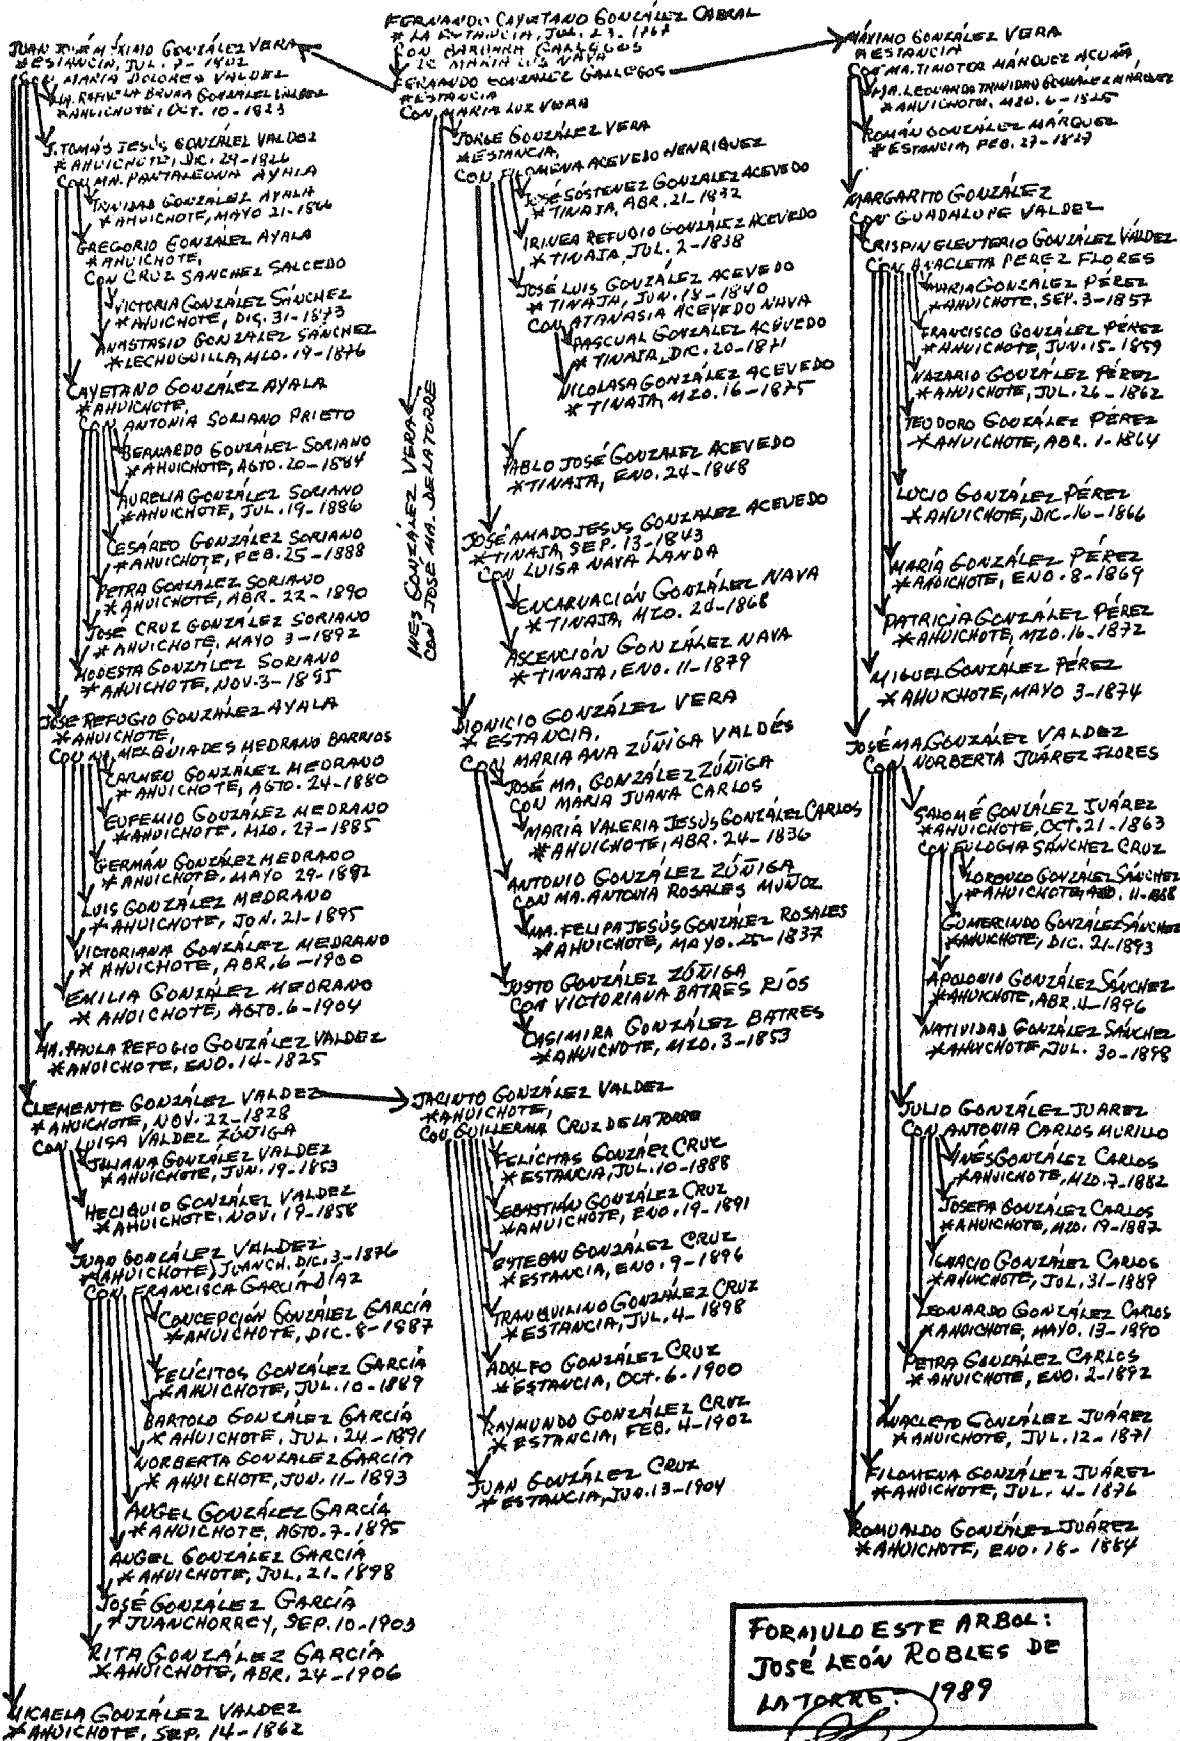 FERNANDO CAYETANO GONZÁLEZ CABRAL
* LA ESTANCIA, JUL. 23-1767
CON BARBARA GALLEGOS
2C MARIA LUS NAVA
FERNANDO GONZALEZ GALLEGOS
*ESTANCIA
CON MARIA LUZ VERA
JUAN JOSÉ MÁXIMO GONZÁLEZ VERA
*ESTANCIA, JUL. 7-1802
CON MARIA DOLORES VALDEZ
MA. BRUNA GONZALEZ VALDEZ
*AHUICHOTE, OCT. 10-1823
J. TOMÁS JESÚS GONZÁLEZ VALDEZ
*AHUICHOTE, DIC. 29-1826
CON MA. PANTALEONA AYALA
TRINIDAD GONZÁLEZ AYALA
*AHUICHOTE, MAYO 21-1866
GREGORIO GONZÁLEZ AYALA
*AHUICHOTE,
CON CRUZ SANCHEZ SALCEDO
VICTORIA GONZÁLEZ SÁNCHEZ
*AHUICHOTE, DIC. 31-1873
ANASTASIO GONZALEZ SANCHEZ
*LECHUGUILLA, MZO. 19-1876
CAYETANO GONZÁLEZ AYALA
*AHUICHOTE
CON ANTONIA SORIANO PRIETO
BERNARDO GONZÁLEZ SORIANO
*AHUICHOTE, AGTO. 20-1884
AURELIA GONZÁLEZ SORIANO
*AHUICHOTE, JUL. 19-1886
CESÁREO GONZÁLEZ SORIANO
*AHUICHOTE, FEB. 25-1888
PETRA GONZALEZ SORIANO
*AHUICHOTE, ABR. 22-1890
JOSÉ CRUZ GONZÁLEZ SORIANO
*AHUICHOTE, MAYO 3-1892
MODESTA GONZÁLEZ SORIANO
*AHUICHOTE, NOV. 3-1895
JOSE REFUGIO GONZÁLEZ AYALA
*AHUICHOTE,
CON MA. MELQUIADES MEDRANO BARRIOS
CARMEN GONZÁLEZ MEDRANO
*AHUICHOTE, AGTO. 24-1880
EUFEMIO GONZÁLEZ MEDRANO
*AHUICHOTE, MZO. 27-1885
GERMÁN GONZÁLEZ MEDRANO
*AHUICHOTE, MAYO 29-1892
LUIS GONZÁLEZ MEDRANO
*AHUICHOTE, JUN. 21-1895
VICTORIANA GONZÁLEZ MEDRANO
*AHUICHOTE, ABR. 6-1900
EMILIA GONZÁLEZ MEDRANO
*AHUICHOTE, AGTO. 6-1904
MA. PAULA REFUGIO GONZÁLEZ VALDEZ
*AHUICHOTE, ENO. 14-1825
CLEMENTE GONZÁLEZ VALDEZ
*AHUICHOTE, NOV. 22-1828
CON LUISA VALDEZ ZÚÑIGA
JULIANA GONZÁLEZ VALDEZ
*AHUICHOTE, JUN. 19-1853
HECIQUIO GONZÁLEZ VALDEZ
*AHUICHOTE, NOV. 19-1858
JUAN GONZÁLEZ VALDEZ
*(AHUICHOTE) JUANCH. DIC. 3-1876
CON FRANCISCA GARCÍA DÍAZ
CONCEPCIÓN GONZÁLEZ GARCÍA
*AHUICHOTE, DIC. 8-1887
FELÍCITOS GONZÁLEZ GARCÍA
*AHUICHOTE, JUL. 10-1889
BARTOLO GONZÁLEZ GARCÍA
*AHUICHOTE, JUL. 24-1891
NORBERTA GONZALEZ GARCÍA
*AHUICHOTE, JUN. 11-1893
ANGEL GONZÁLEZ GARCÍA
*AHUICHOTE, AGTO. 7-1895
ANGEL GONZÁLEZ GARCÍA
*AHUICHOTE, JUL. 21-1898
JOSÉ GONZÁLEZ GARCÍA
*JUANCHORREY, SEP. 10-1903
RITA GONZÁLEZ GARCÍA
*AHUICHOTE, ABR. 24-1906
MICAELA GONZÁLEZ VALDEZ
*AHUICHOTE, SEP. 14-1862
INES GONZÁLEZ VERA
CON JOSÉ MA. DE LA TORRE
JORGE GONZÁLEZ VERA
*ESTANCIA,
CON FILOMENA ACEVEDO HENRIQUEZ
JOSÉ SÓSTENEZ GONZALEZ ACEVEDO
*TINAJA, ABR. 21-1832
IRINEA REFUGIO GONZÁLEZ ACEVEDO
*TINAJA, JUL. 2-1838
JOSÉ LUIS GONZÁLEZ ACEVEDO
*TINAJA, JUN. 18-1840
CON ATANASIA ACEVEDO NAVA
PASCUAL GONZÁLEZ ACEVEDO
*TINAJA, DIC. 20-1871
NICOLASA GONZÁLEZ ACEVEDO
*TINAJA, MZO. 16-1875
PABLO JOSÉ GONZALEZ ACEVEDO
*TINAJA, ENO. 24-1848
JOSÉ AMADO JESUS GONZALEZ ACEVEDO
*TINAJA, SEP. 13-1843
CON LUISA NAVA LANDA
ENCARNACIÓN GONZÁLEZ NAVA
*TINAJA, MZO. 20-1868
ASCENCIÓN GONZÁLEZ NAVA
*TINAJA, ENO. 11-1879
DIONICIO GONZÁLEZ VERA
*ESTANCIA.
CON MARIA ANA ZÚÑIGA VALDÉS
JOSÉ MA. GONZÁLEZ ZÚÑIGA
CON MARIA JUANA CARLOS
MARIÁ VALERIA JESÚS GONZÁLEZ CARLOS
*AHUICHOTE, ABR. 24-1836
ANTONIO GONZÁLEZ ZÚÑIGA
CON MA. ANTONIA ROSALES MUÑOZ
MA. FELIPA JESÚS GONZÁLEZ ROSALES
*AHUICHOTE, MAYO. 25-1837
JUSTO GONZÁLEZ ZÚÑIGA
CON VICTORIANA BATRES RIOS
CASIMIRA GONZÁLEZ BATRES
*AHUICHOTE, MZO. 3-1853
JACINTO GONZÁLEZ VALDEZ
*AHUICHOTE,
CON GUILLERMA CRUZ DE LA TORRE
FELÍCITAS GONZÁLEZ CRUZ
*ESTANCIA, JUL. 10-1888
SEBASTIÁN GONZÁLEZ CRUZ
*AHUICHOTE, ENO. 19-1891
ESTEBAN GONZÁLEZ CRUZ
*ESTANCIA, ENO. 9-1896
TRANQUILINO GONZÁLEZ CRUZ
*ESTANCIA, JUL. 4-1898
ADOLFO GONZÁLEZ CRUZ
*ESTANCIA, OCT. 6-1900
RAYMUNDO GONZÁLEZ CRUZ
*ESTANCIA, FEB. 4-1902
JUAN GONZÁLEZ CRUZ
*ESTANCIA, JUN. 13-1904
MÁXIMO GONZÁLEZ VERA
*ESTANCIA
CON MA. TIMOTEA MÁRQUEZ ACUÑA
MA. LEOCANDA TRINIDAD GONZÁLEZ MÁRQUEZ
*AHUICHOTE, MZO. 6-1825
ROMÁN GONZÁLEZ MÁRQUEZ
*ESTANCIA, FEB. 27-1827
MARGARITO GONZÁLEZ
CON GUADALUPE VALDEZ
CRISPIN ELEUTERIO GONZÁLEZ VALDEZ
CON ANACLETA PEREZ FLORES
MARIA GONZÁLEZ PÉREZ
*AHUICHOTE, SEP. 3-1857
FRANCISCO GONZÁLEZ PÉREZ
*AHUICHOTE, JUN. 15-1859
NAZARIO GONZÁLEZ PÉREZ
*AHUICHOTE, JUL. 26-1862
TEODORO GONZÁLEZ PÉREZ
*AHUICHOTE, ABR. 1-1864
LUCIO GONZÁLEZ PÉREZ
*AHUICHOTE, DIC. 16-1866
MARÍA GONZÁLEZ PÉREZ
*AHUICHOTE, ENO. 8-1869
PATRICIA GONZÁLEZ PÉREZ
*AHUICHOTE, MZO. 16-1872
MIGUEL GONZÁLEZ PÉREZ
*AHUICHOTE, MAYO 3-1874
JOSÉ MA GONZÁLEZ VALDEZ
CON NORBERTA JUÁREZ FLORES
SALOMÉ GONZÁLEZ JUÁREZ
*AHUICHOTE, OCT. 21-1863
CON EULOGIA SÁNCHEZ CRUZ
LORENZO GONZÁLEZ SÁNCHEZ
*AHUICHOTE, 11-1888
GUMERCINDO GONZÁLEZ SÁNCHEZ
*AHUICHOTE, DIC. 21-1893
APOLONIO GONZÁLEZ SÁNCHEZ
*AHUICHOTE, ABR. 4-1896
NATIVIDAD GONZÁLEZ SÁNCHEZ
*AHUICHOTE, JUL. 30-1898
JULIO GONZÁLEZ JUAREZ
CON ANTONIA CARLOS MURILLO
INÉS GONZÁLEZ CARLOS
*AHUICHOTE, MZO. 7-1882
JOSEFA GONZÁLEZ CARLOS
*AHUICHOTE, MZO. 19-1887
IGNACIO GONZÁLEZ CARLOS
*AHUICHOTE, JUL. 31-1889
LEONARDO GONZÁLEZ CARLOS
*AHUICHOTE, MAYO. 13-1890
PETRA GONZÁLEZ CARLOS
*AHUICHOTE, ENO. 2-1892
ANACLETO GONZÁLEZ JUÁREZ
*AHUICHOTE, JUL. 12-1871
FILOMENA GONZÁLEZ JUÁREZ
*AHUICHOTE, JUL. 4-1876
ROMUALDO GONZÁLEZ JUÁREZ
*AHUICHOTE, ENO. 18-1884
FORMULO ESTE ARBOL:
JOSÉ LEÓN ROBLES DE
LA TORRE. 1989